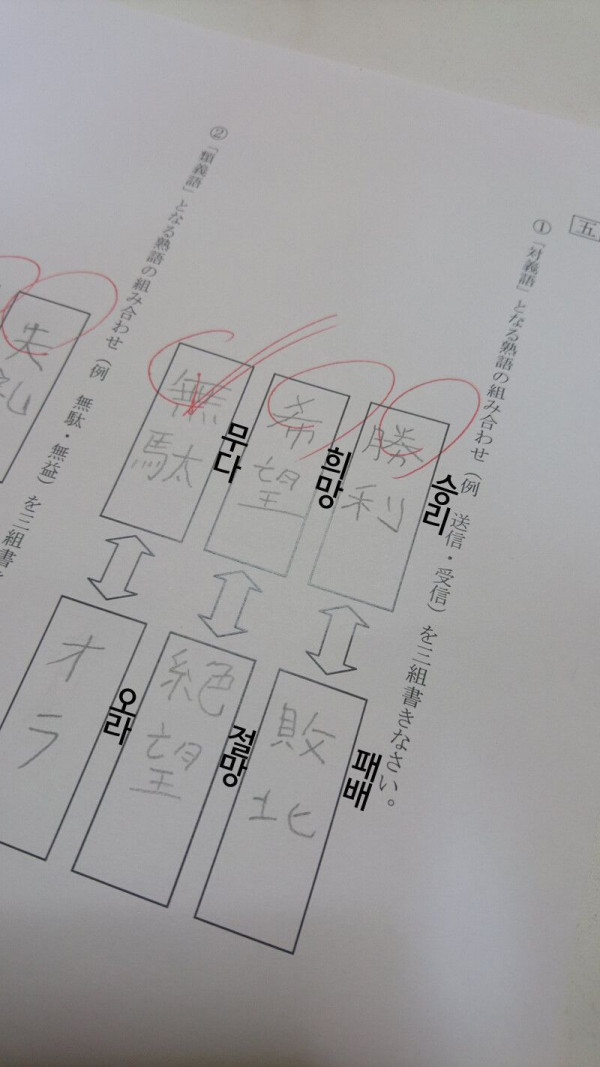 五
①「対義語」となる熟語の組み合わせ（例　送信・受信）を三組書きなさい。
勝利
승리
敗北
패배
希望
희망
絶望
절망
無駄
무다
オラ
오라
②「類義語」となる熟語の組み合わせ（例　無駄・無益）を三組書き
失礼